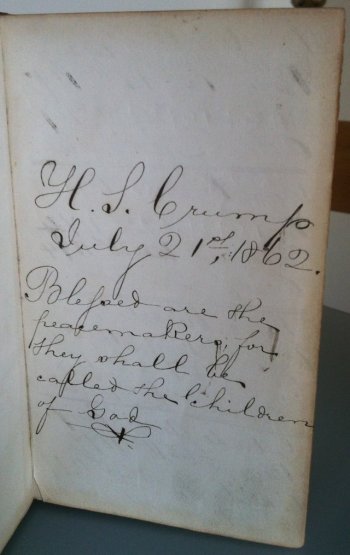 H. S. Crump
July 21st, 1862.
Blessed are the
peacemakers; for
they shall be
called the Children
of God